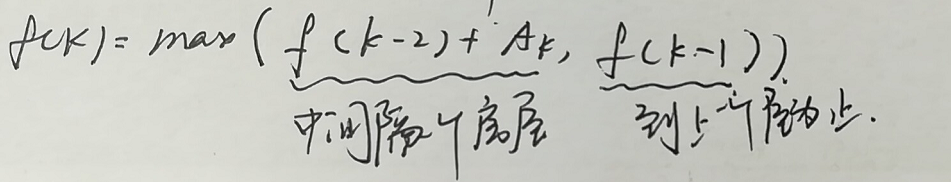 f(k) = max(f(k-2)+Ak, f(k-1)).
中间隔个房屋 到上一个房为止.